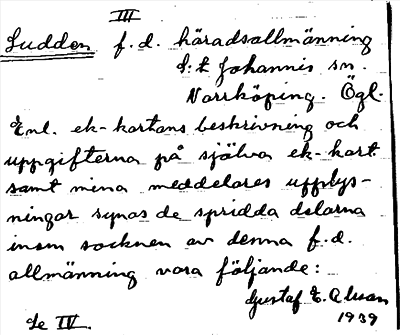 III
Sudden f.d. häradsallmänning
S:t Johannis sn.
Norrköping. Ögl.
Enl. ek-kartans beskrivning och
uppgifterna på själva ek-kart.
samt mina meddelares upplys-
ningar synas de spridda delarna
inom socknen av denna f.d.
allmänning vara följande:
Gustaf E. Alsson
1939
Se IV.